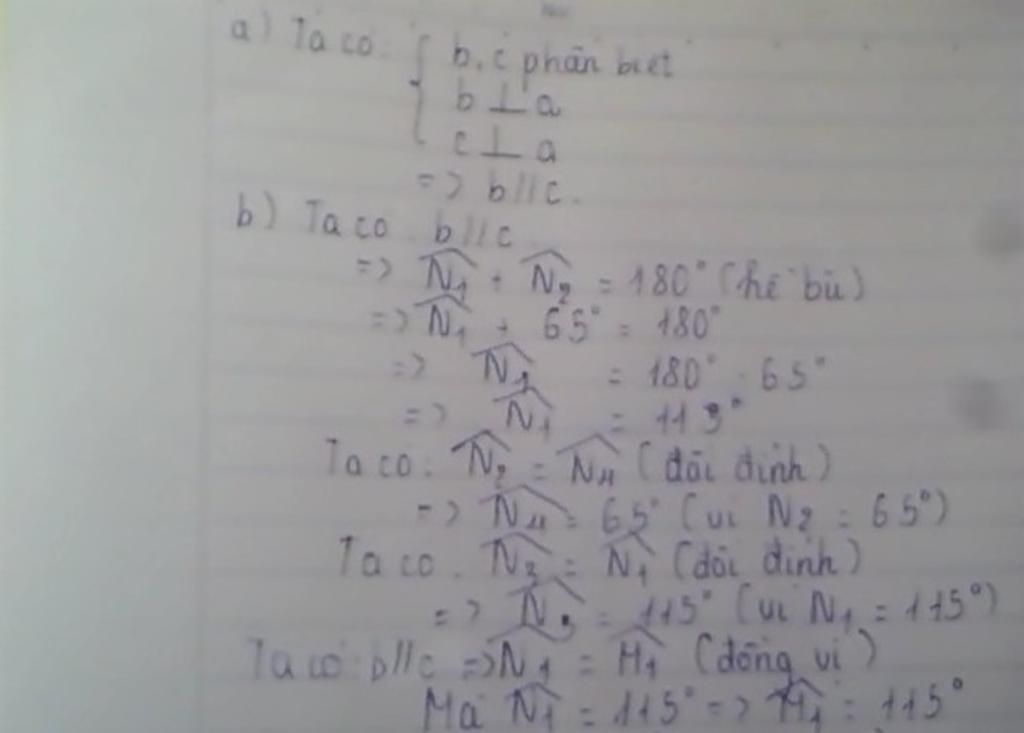 a) Ta có: { b, c phân biệt
b ⊥ a
c ⊥ a
=> b // c.
b) Ta có b // c
=> N₁ + N₂ = 180° (kề bù)
=> N₁ + 65° = 180°
=> N₁ = 180° - 65°
=> N₁ = 115°
Ta có: N₂ = N₄ (đối đỉnh)
=> N₄ = 65° (vì N₂ = 65°)
Ta có. N₃ = N₁ (đối đỉnh)
=> N₃ = 115° (vì N₁ = 115°)
Ta có b // c => N₁ = M₁ (đồng vị)
Mà N₁ = 115° => M₁ = 115°